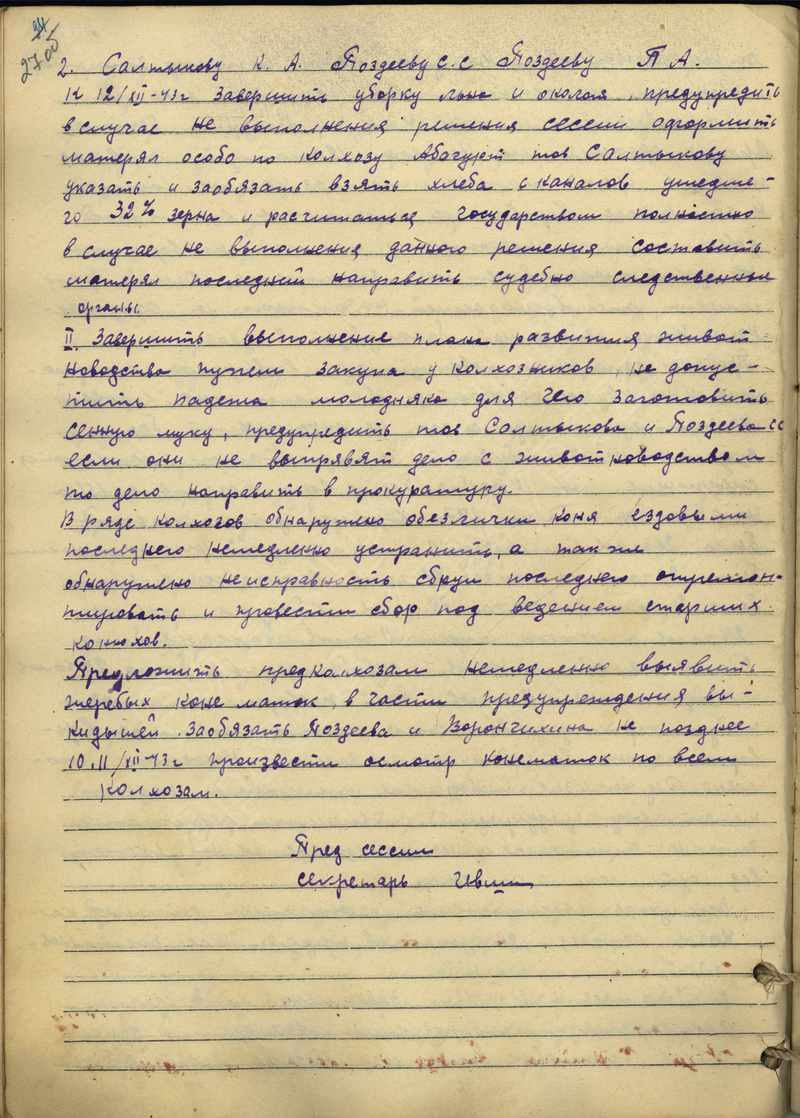 24
27об
2. Салтыкову К. А. Поздееву С. С Поздееву П А.
К 12/XII-43г завершить уборку льна и околот, предупредить
в случае не выполнения решения сессии оформить
матерял особо по колхозу тов Салтыкову
указать и заобязать взять хлеба с каналов ушедше-
го 32% зерна и расчитаться государством полностью
в случае не выполнения данного решения составить
матерял последний направить судебно следственные
органы.
II. Завершить выполнение плана развития живот-
новодства путем закупа у колхозников, не допус-
тить падежа молодняка для чего заготовить
сенную муку, предупредить тов Салтыкова и Поздеева СС
если они не выпрявят дело с животноводством
то дело направить в прокуратуру.
В ряде колхозов обнаружено обезлички коня ездовыми
последнего немедленно устранить, а так же
обнаружено неисправность сбруи последнего отремон-
тировать и провести сбор под ведением старших
конюхов.
Предложить предколхозам немедленно выявить
жеребых коне маток, в части предупреждения вы-
кидышей. Заобязать Поздеева и Ворончихина не позднее
10.11/XII-43г произвести осмотр конематок по всем
колхозам.
Пред сессии
секретарь